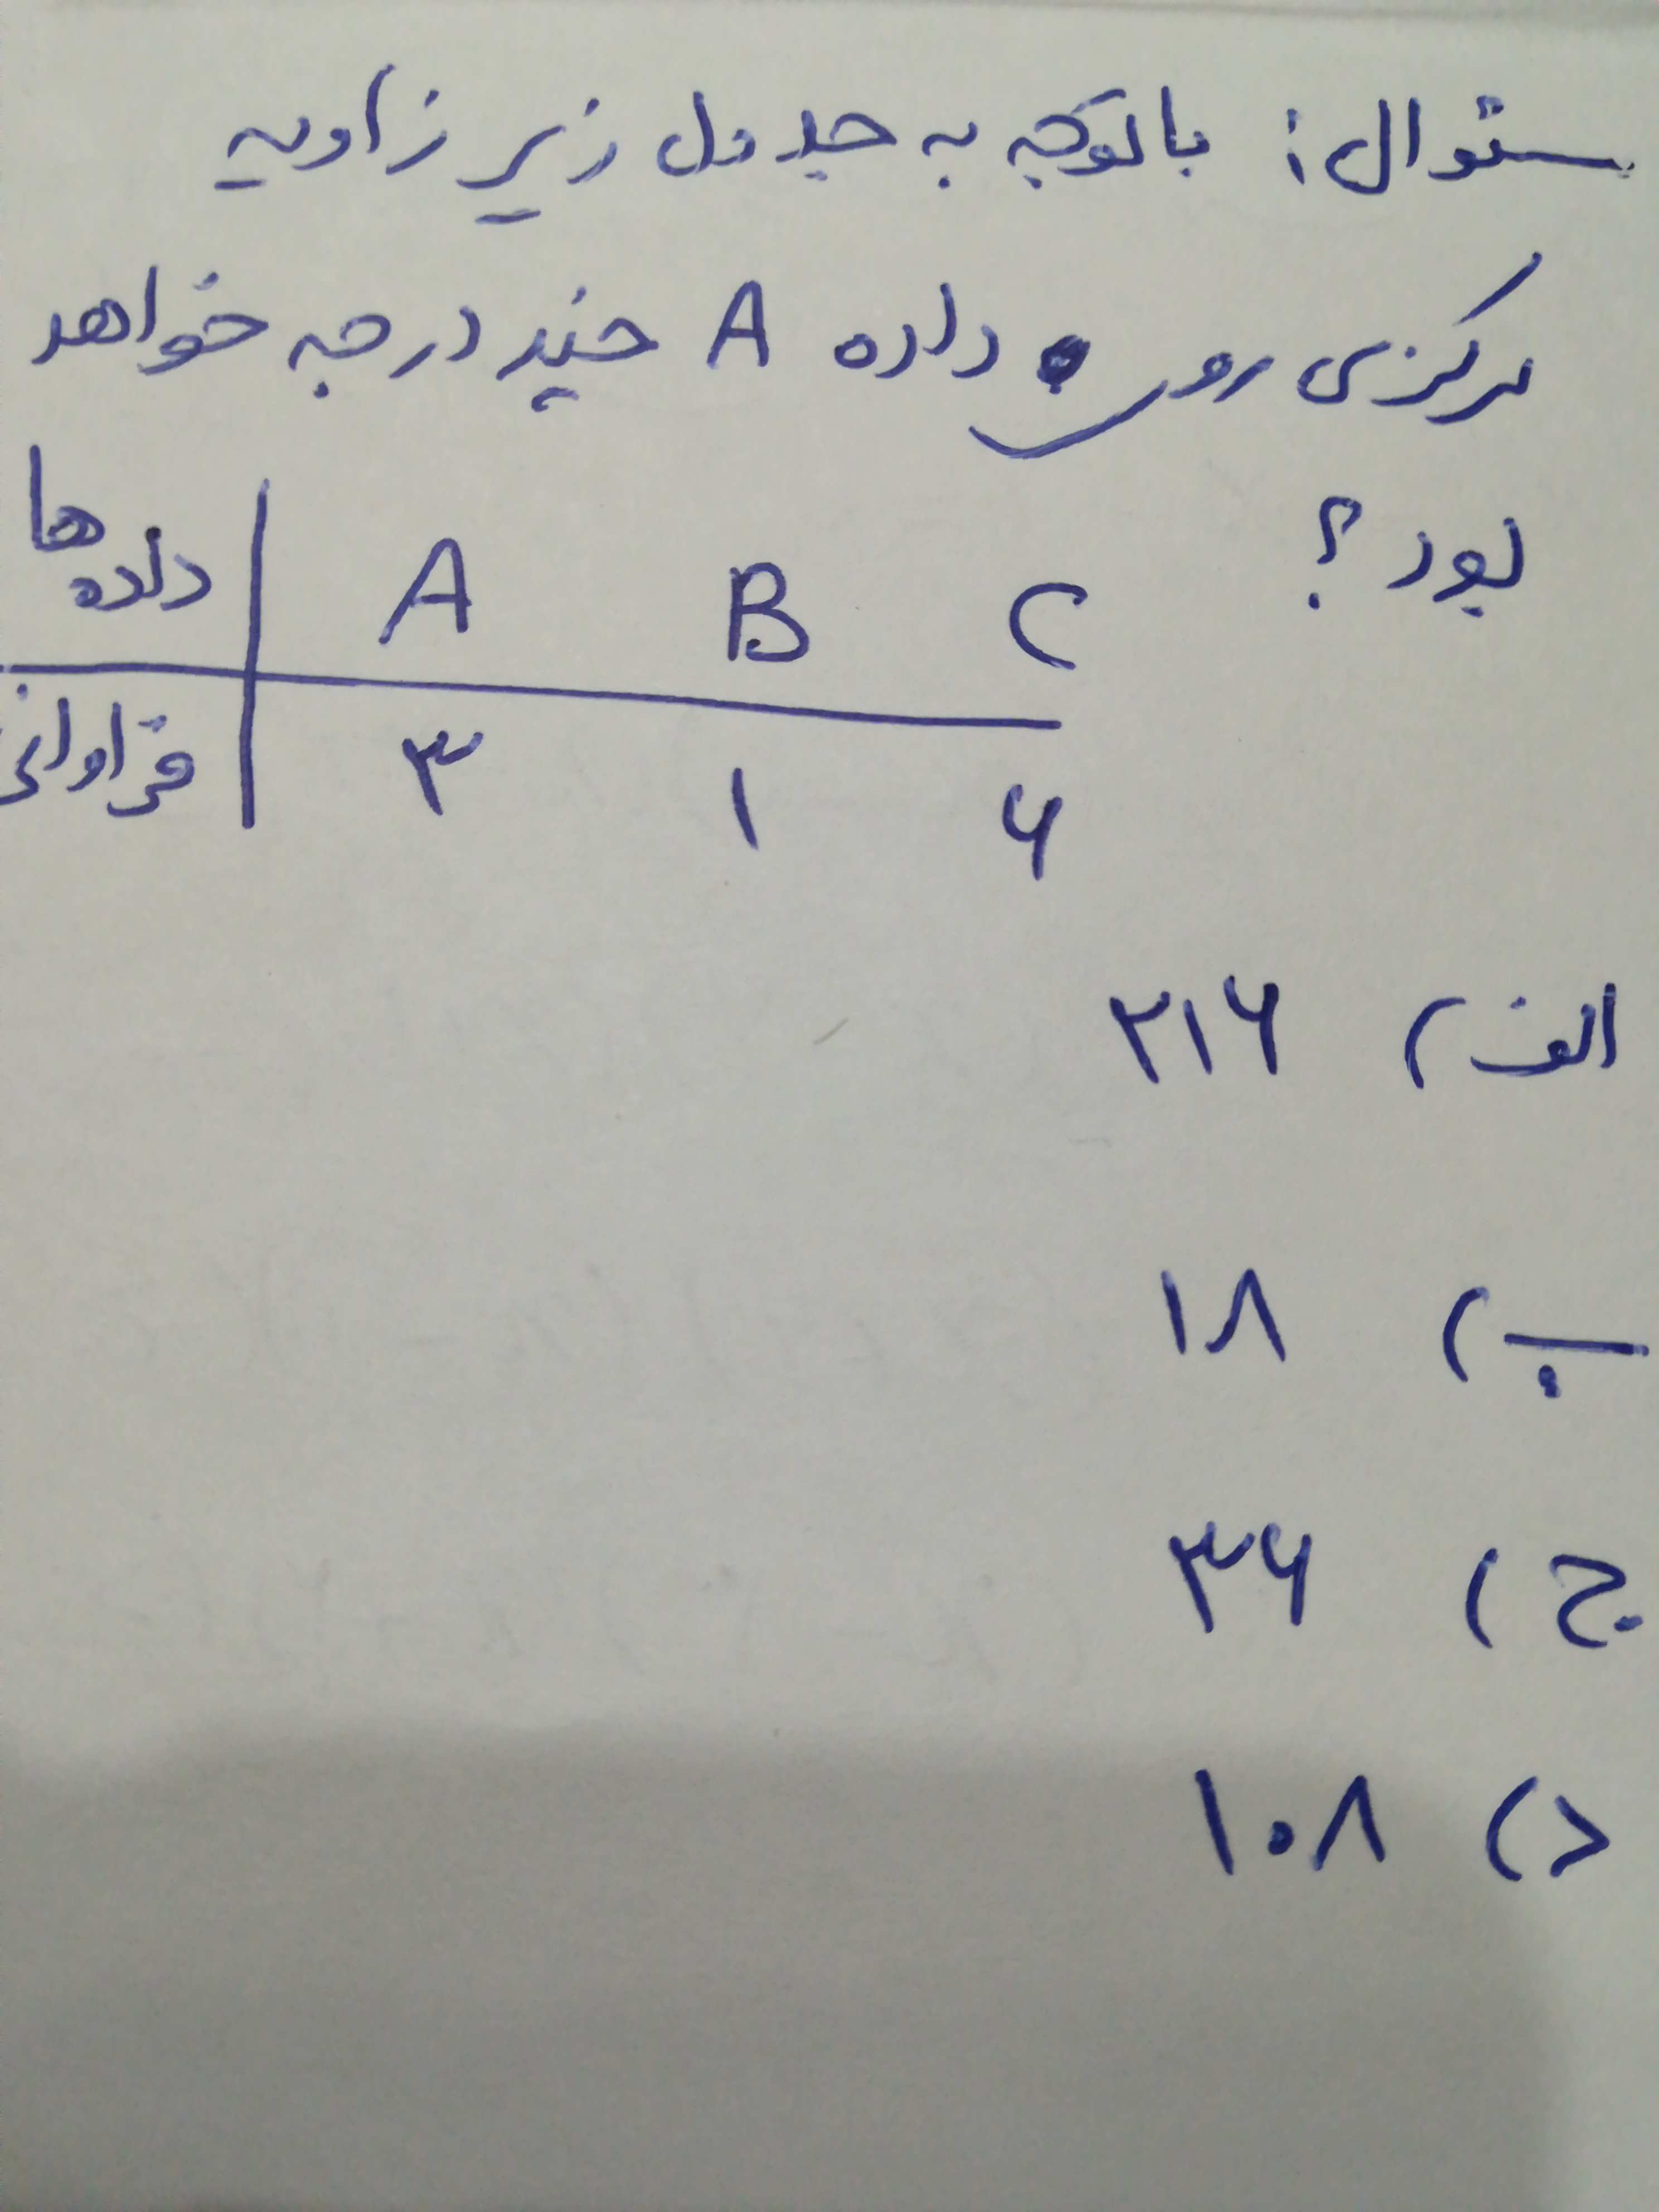 سئوال: باتوجه به جدول زیر زاویه
مرکزی روی داده A چند درجه خواهد
بود؟
داده‌ها A B C
فراوانی ۳ ۱ ۶
الف) ۲۱۶
ب) ۱۸
ج) ۳۶
د) ۱۰۸